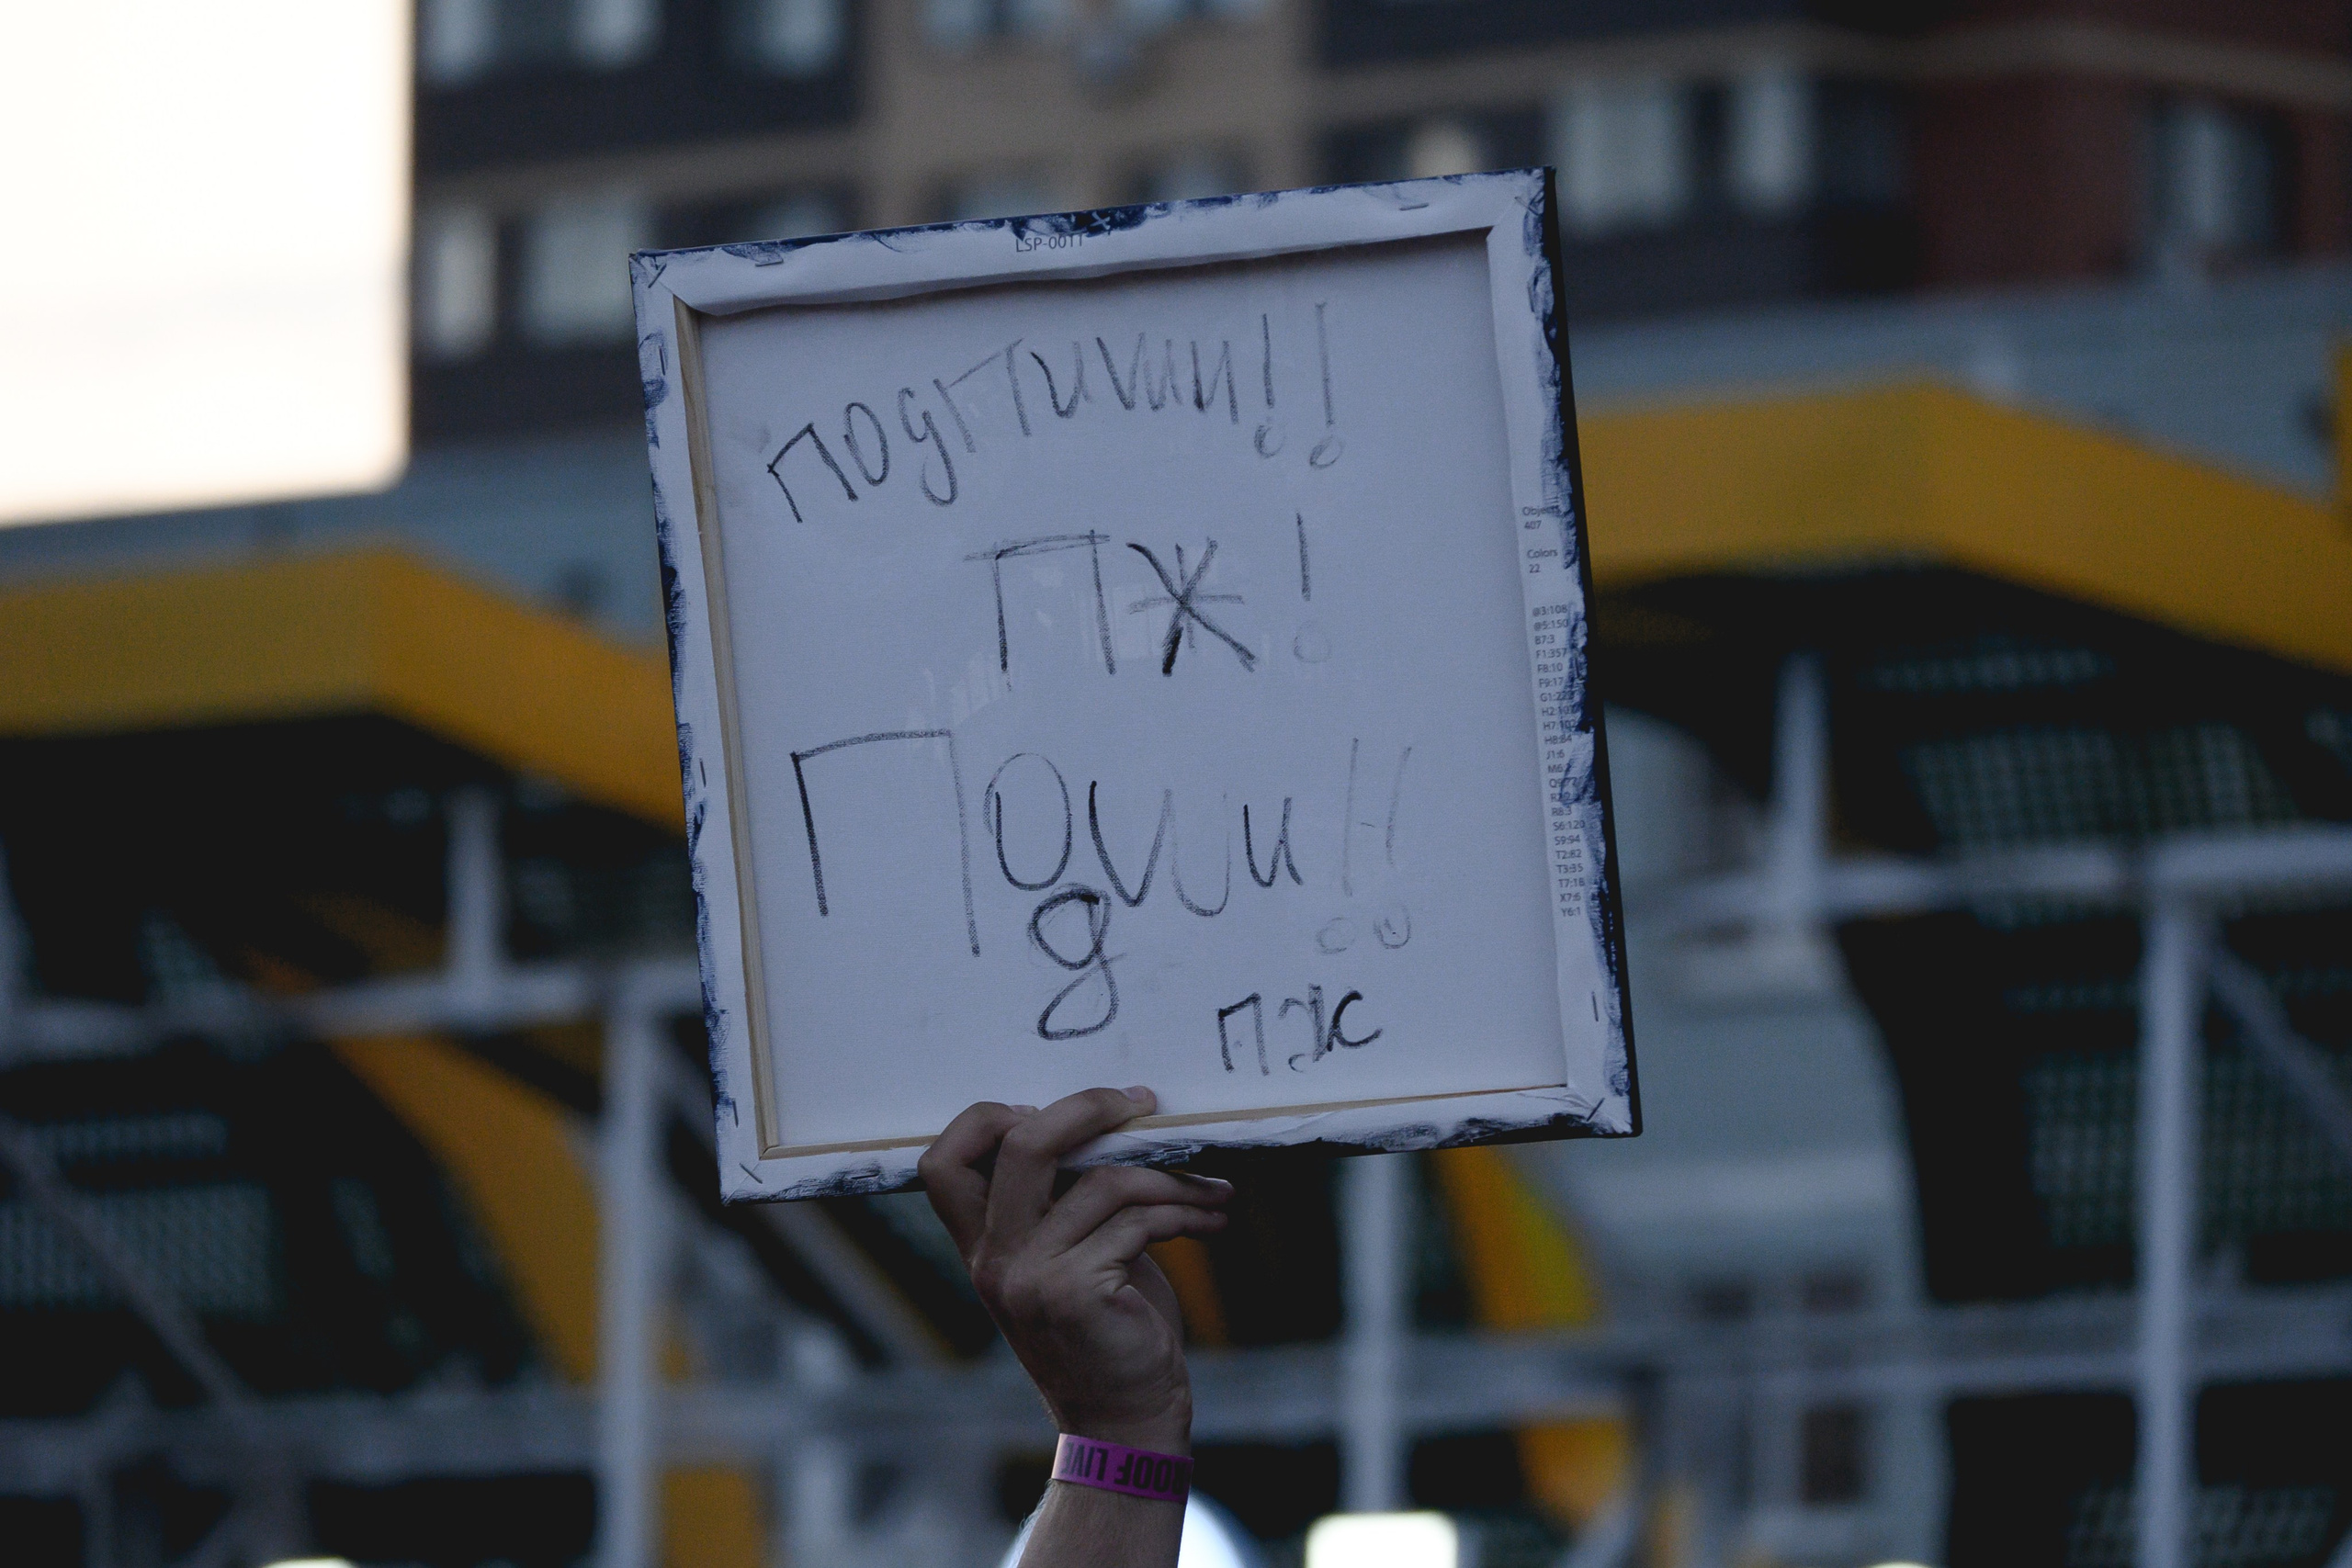 LSP-0011
подпиши!!
ПЖ!
Подши!!
пж
Objects
407
Colors
22
@3:108
@5:150
B7:3
F1:357
F8:10
F9:17
H7:102
H8:84
J1:6
R8:3
S6:120
S9:94
T2:82
T3:35
T7:18
X7:6
Y6:1
ROOF LIVE